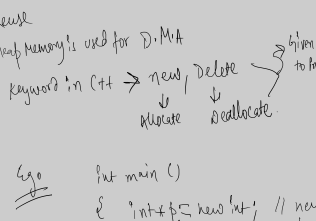 euse
eap Memory is used for D.M.A
Keyword in C++ → new, Delete
Given
to Pr
↓ ↓
Allocate Deallocate.
Ego int main ()
{ int*p = new int; // new